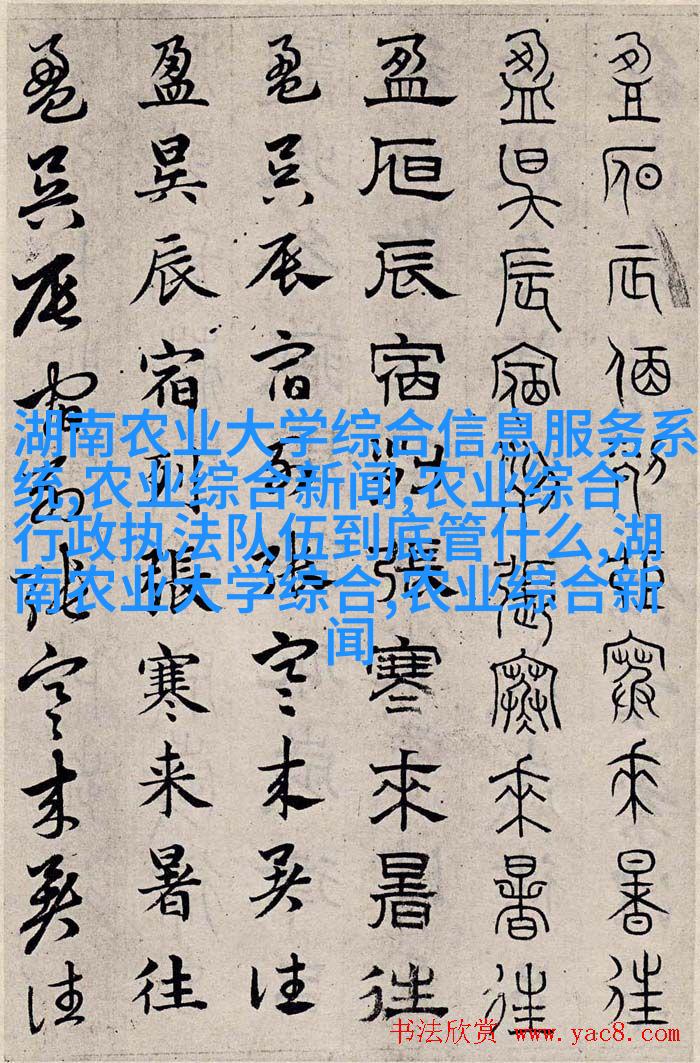 盈昃辰宿列張寒來暑往
盈昃辰宿列張寒來暑往
盈昃辰宿列張寒來暑往
盈昃辰宿列張寒来暑往
盈昃辰宿列張寒来暑往
盈昃辰宿列張寒来暑往
湖南农业大学综合信息服务系
统,农业综合新闻,农业综合
行政执法队伍到底管什么,湖
南农业大学综合,农业综合新
闻
书法欣赏 www.yac8.com